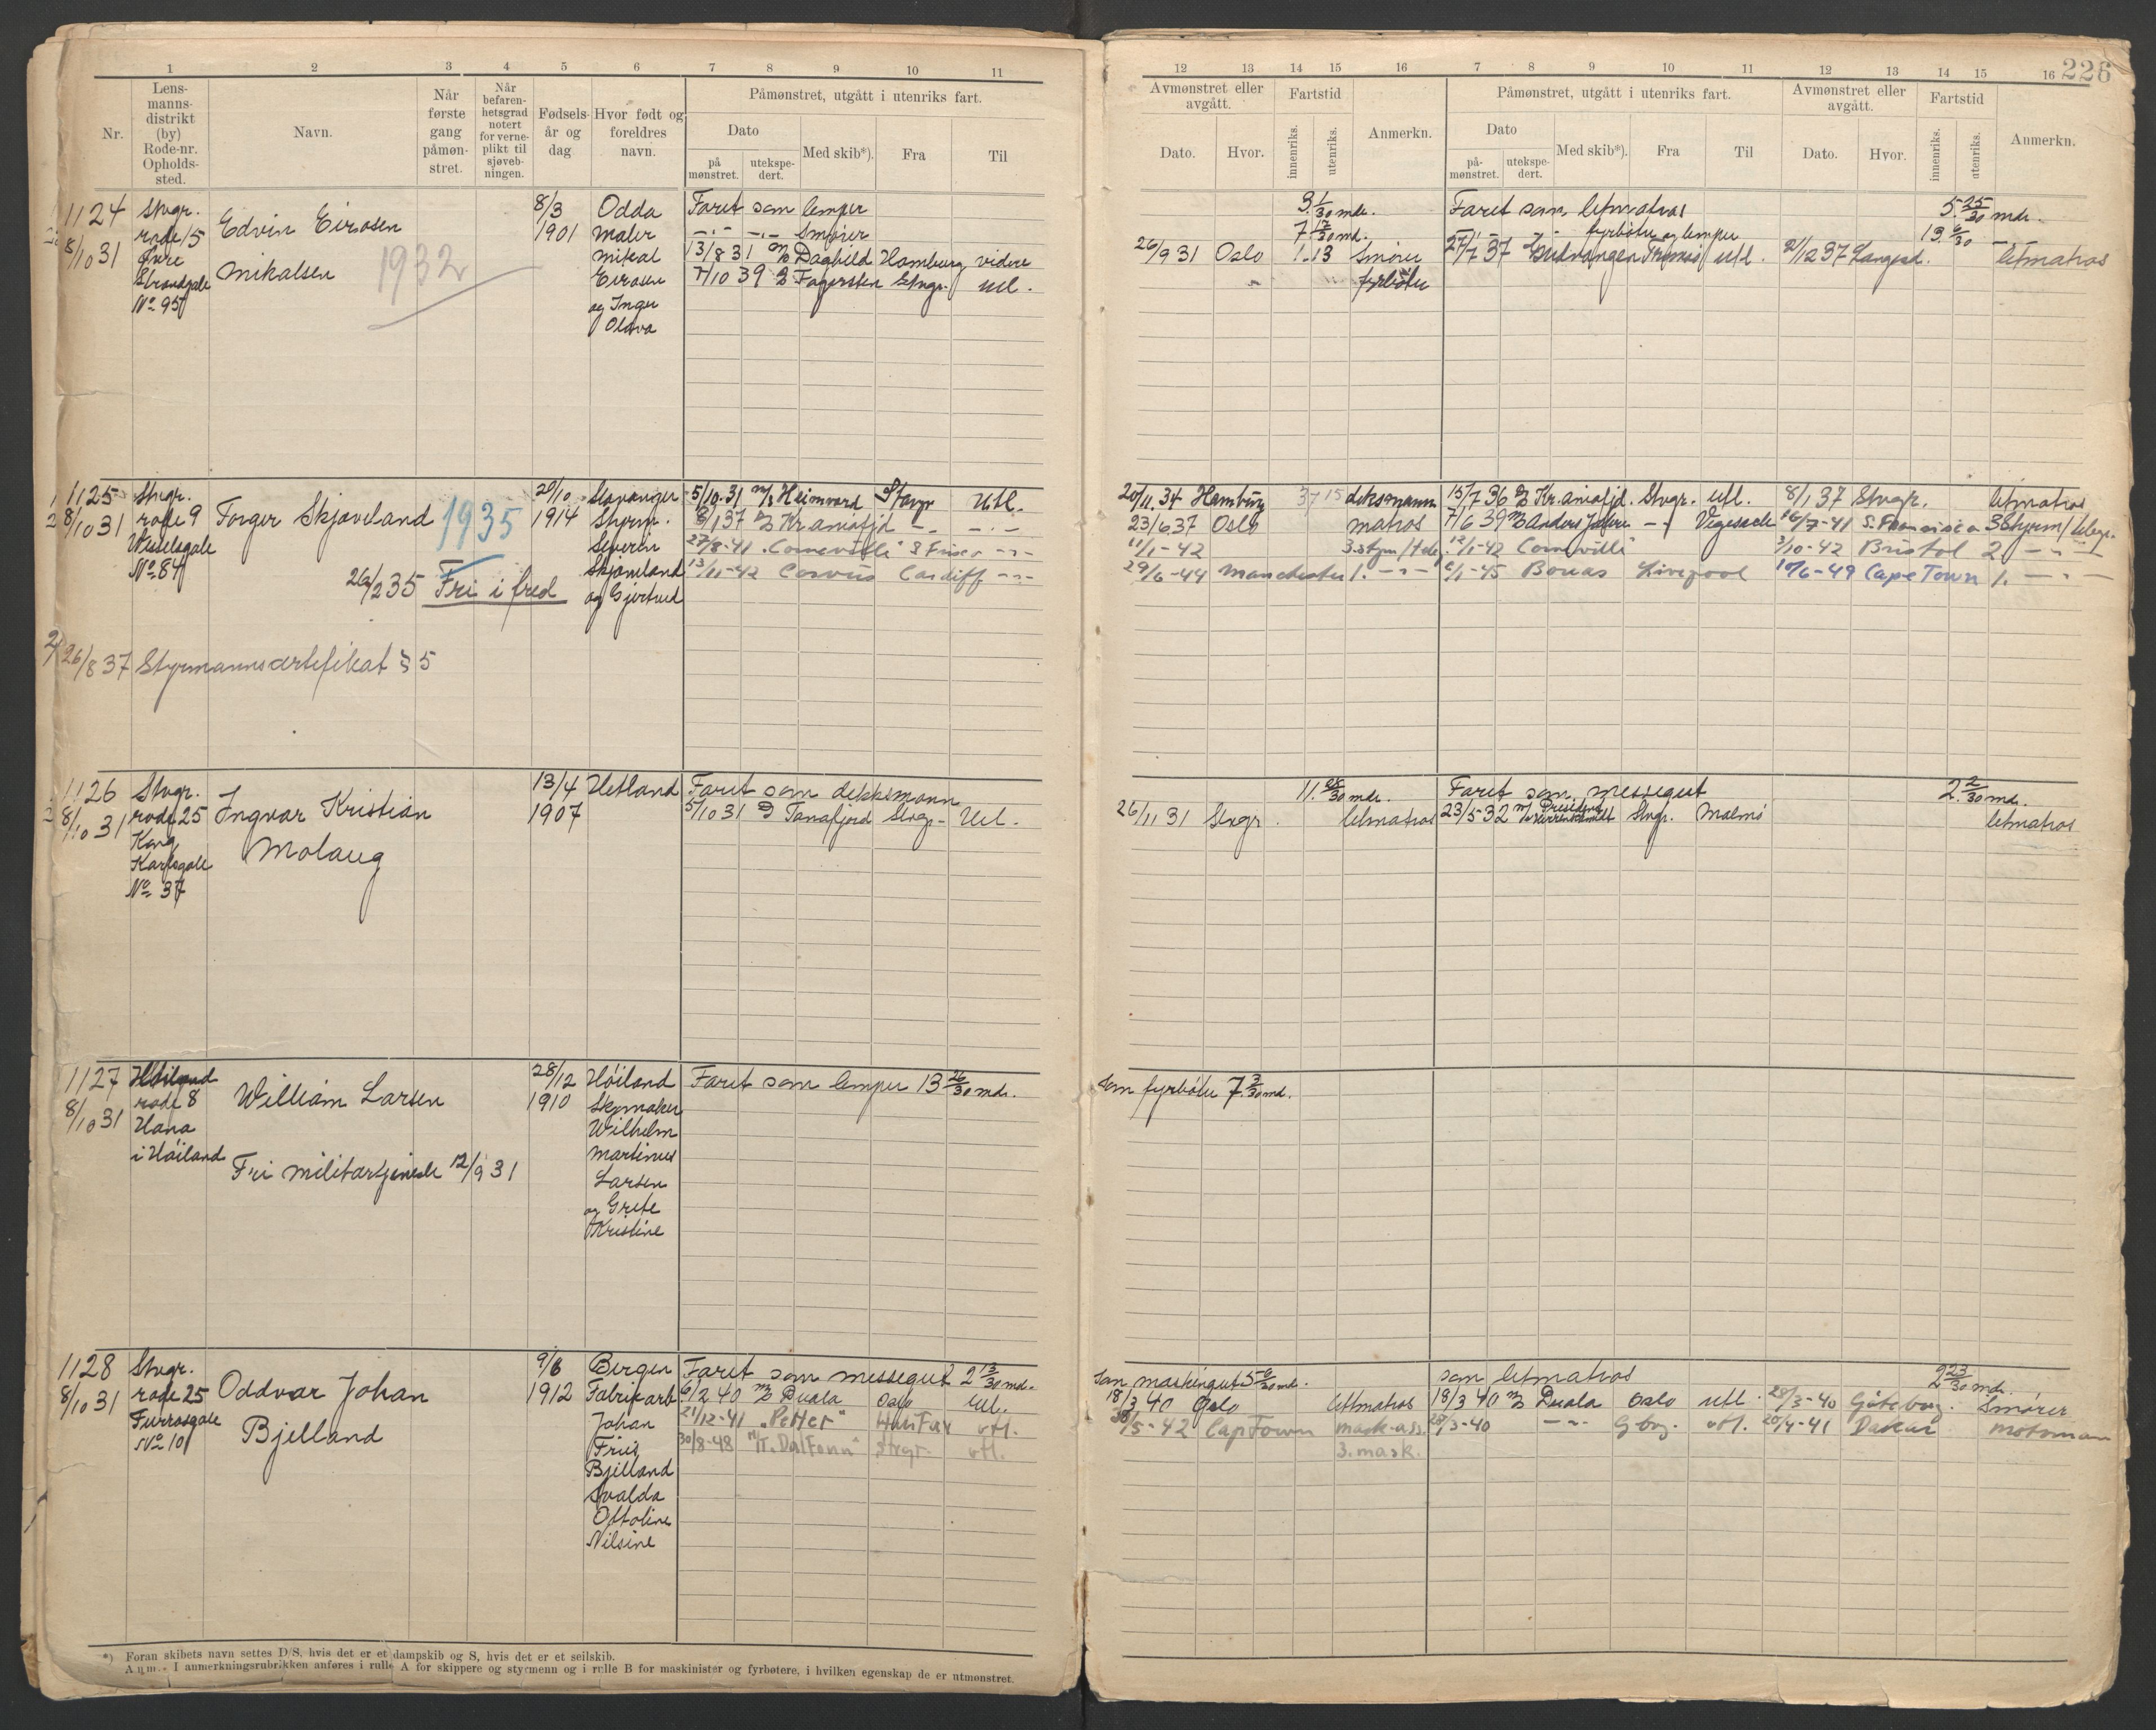 226
1 2 3 4 5 6 7 8 9 10 11
Nr.
Lens-
manns-
distrikt
(by)
Rode-nr.
Opholds-
sted.
Navn.
Når
første
gang
påmøn-
stret.
Når
befaren-
hetsgrad
notert
for verne-
plikt til
sjøveb-
ningen.
Fødsels-
år og
dag
Hvor født og
foreldres
navn.
Påmønstret, utgått i utenriks fart.
Dato
på
mønstret.
utekspe-
dert.
Med skib*).
Fra
Til
12 13 14 15 16 7 8 9 10 11 12 13 14 15 16
Avmønstret eller
avgått.
Dato.
Hvor.
Fartstid
innenriks.
utenriks.
Anmerkn.
Påmønstret, utgått i utenriks fart.
Dato
på-
mønstret.
utekspe-
dert.
Med skib*).
Fra
Til
Avmønstret eller
avgått.
Dato.
Hvor.
Fartstid
innenriks.
utenriks.
Anmerkn.
1124
8/10 31
Stvgr.
rode 15
Øvre
Strandgate
No 95
Edvin Eirosen
Mikalsen
1932
8/3
1901
Odda
Maler
Mikal
Eirosen
og Inger
Olava
Faret som lemper 3 1/30 mdr. Faret som letmatros 5 25/30 mdr.
—"— —"— Smører 7 12/30 md. —"— fyrbøter og lemper 13
13/8 31 M/S Daghild Hamburg videre 26/9 31 Oslo 1.13 Smører 27/7 37 Gudvangen Tromsø utl. 2/12 37 Langesd. letmatros
7/10 39 Fagersten Stvgr. utl. fyrbøter
1125
8/10 31
Stvgr.
rode 9
Wesselsgate
No. 84
Torger Skjæveland
1935
26/2 35 Fri i fred
20/10
1914
Stavanger
Styrm.
Severin
Skjæveland
og Gjertrud
5/10.31 M/S Heimvard Stavgr Utl. 20/11.34 Hamburg 37 15 deksmann 15/7 36 Kr.aniafjd. Stvgr. utl. 8/1 37 Stvgr. letmatros
8/1 37 Kr.aniafjd —"— 23/6 37 Oslo matros 7/6 39 M/S Anders Jahre —"— Vegesack 16/7-41 S. Francisco 3 Styrm/
27/8-41 "Corneville" S Frisco —"— 11/1-42 3. styrm/ 12/1-42 Corneville 3/10-42 Bristol 2 —"—
13/11-42 Corvus Cardiff —"— 29/6-44 Manchester 1. —"— 6/1-45 Bonas Liverpool 10/6-49 Cape Town 1. —"—
26/8 37 Styrmannscertifikat § 5
1126
8/10 31
Stvgr.
rode 25
Kong
Karlsgate
No. 37
Ingvar Kristian
Molaug
13/4
1907
Hetland
Faret som dekksmann 11. 25/30 mdr. Faret som messegut 2 2/30 md.
5/10 31 D Tanafjord Stvgr. Utl. 26/11 31 Stvgr. letmatros 23/5-32 Stvgr. Malmø letmatros
1127
8/10 31
Høiland
rode 8
Hana
i Høiland
William Larsen
Fri militærtjeneste 12/9 31
28/12
1910
Høiland
Skomaker
Wilhelm
Martinus
Larsen
og Grete
Kristine
Faret som lemper 13 26/30 mdr. Som fyrbøter 7 3/30 md.
1128
8/10 31
Stvgr.
rode 25
Furrasgate
No 10
Oddvar Johan
Bjelland
9/6
1912
Bergen
Fabrikarb
Johan
Friis
Bjelland
Svalda
Ottoline
Nilsine
Faret som messegut 2 13/30 md. Som maskingut 5 6/30 md. som letmatros 2 23/30 md.
6/2 40 M/S Duala Oslo Utl. 18/3 40 Oslo letmatros 18/3 40 M/S Duala Oslo utl. 28/3-40 Göteborg. Smører
21/12-41 "Petter" Halifax utl. 30/5-42 CapTown mask-ass. 28/3-40 —"— G.borg. utl. 20/4-41 Dakar motorman
30/8-48 M/T "Dalfonn" Stvgr. utl. 3. mask.
*) Foran skibets navn settes D/S, hvis det er et dampskib og S, hvis det er et seilskib.
Anm.- I anmerkningsrubrikken anføres i rulle A for skippere og styrmenn og i rulle B for maskinister og fyrbøtere, i hvilken egenskap de er utmønstret.